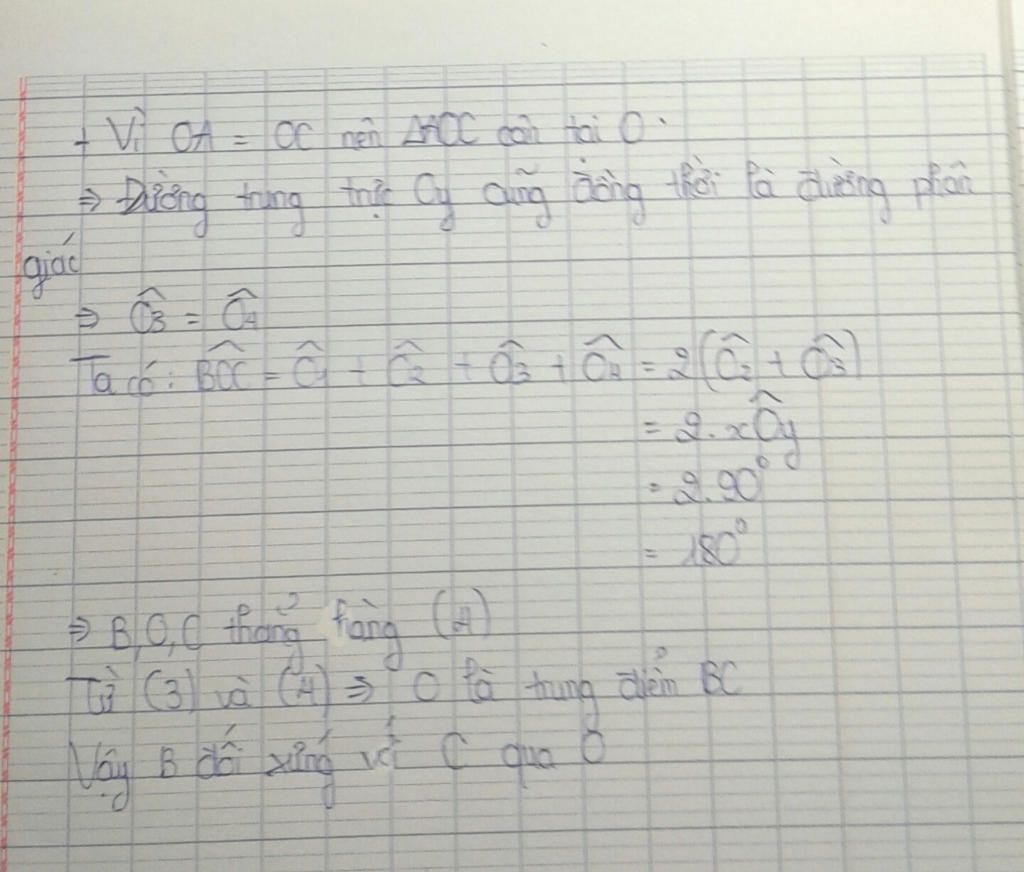 + Vì OA = OC nên ΔAOC cân tại O.
⇒ Đường trung trực Oy cũng đồng thời là đường phân
giác
⇒ Ô3 = Ô4
Ta có: BÔC = Ô1 + Ô2 + Ô3 + Ô4 = 2(Ô2 + Ô3)
= 2.xÔy
= 2.90°
= 180°
⇒ B,O,C thẳng hàng (4)
Từ (3) và (4) ⇒ O là trung điểm BC
Vậy B đối xứng với C qua O